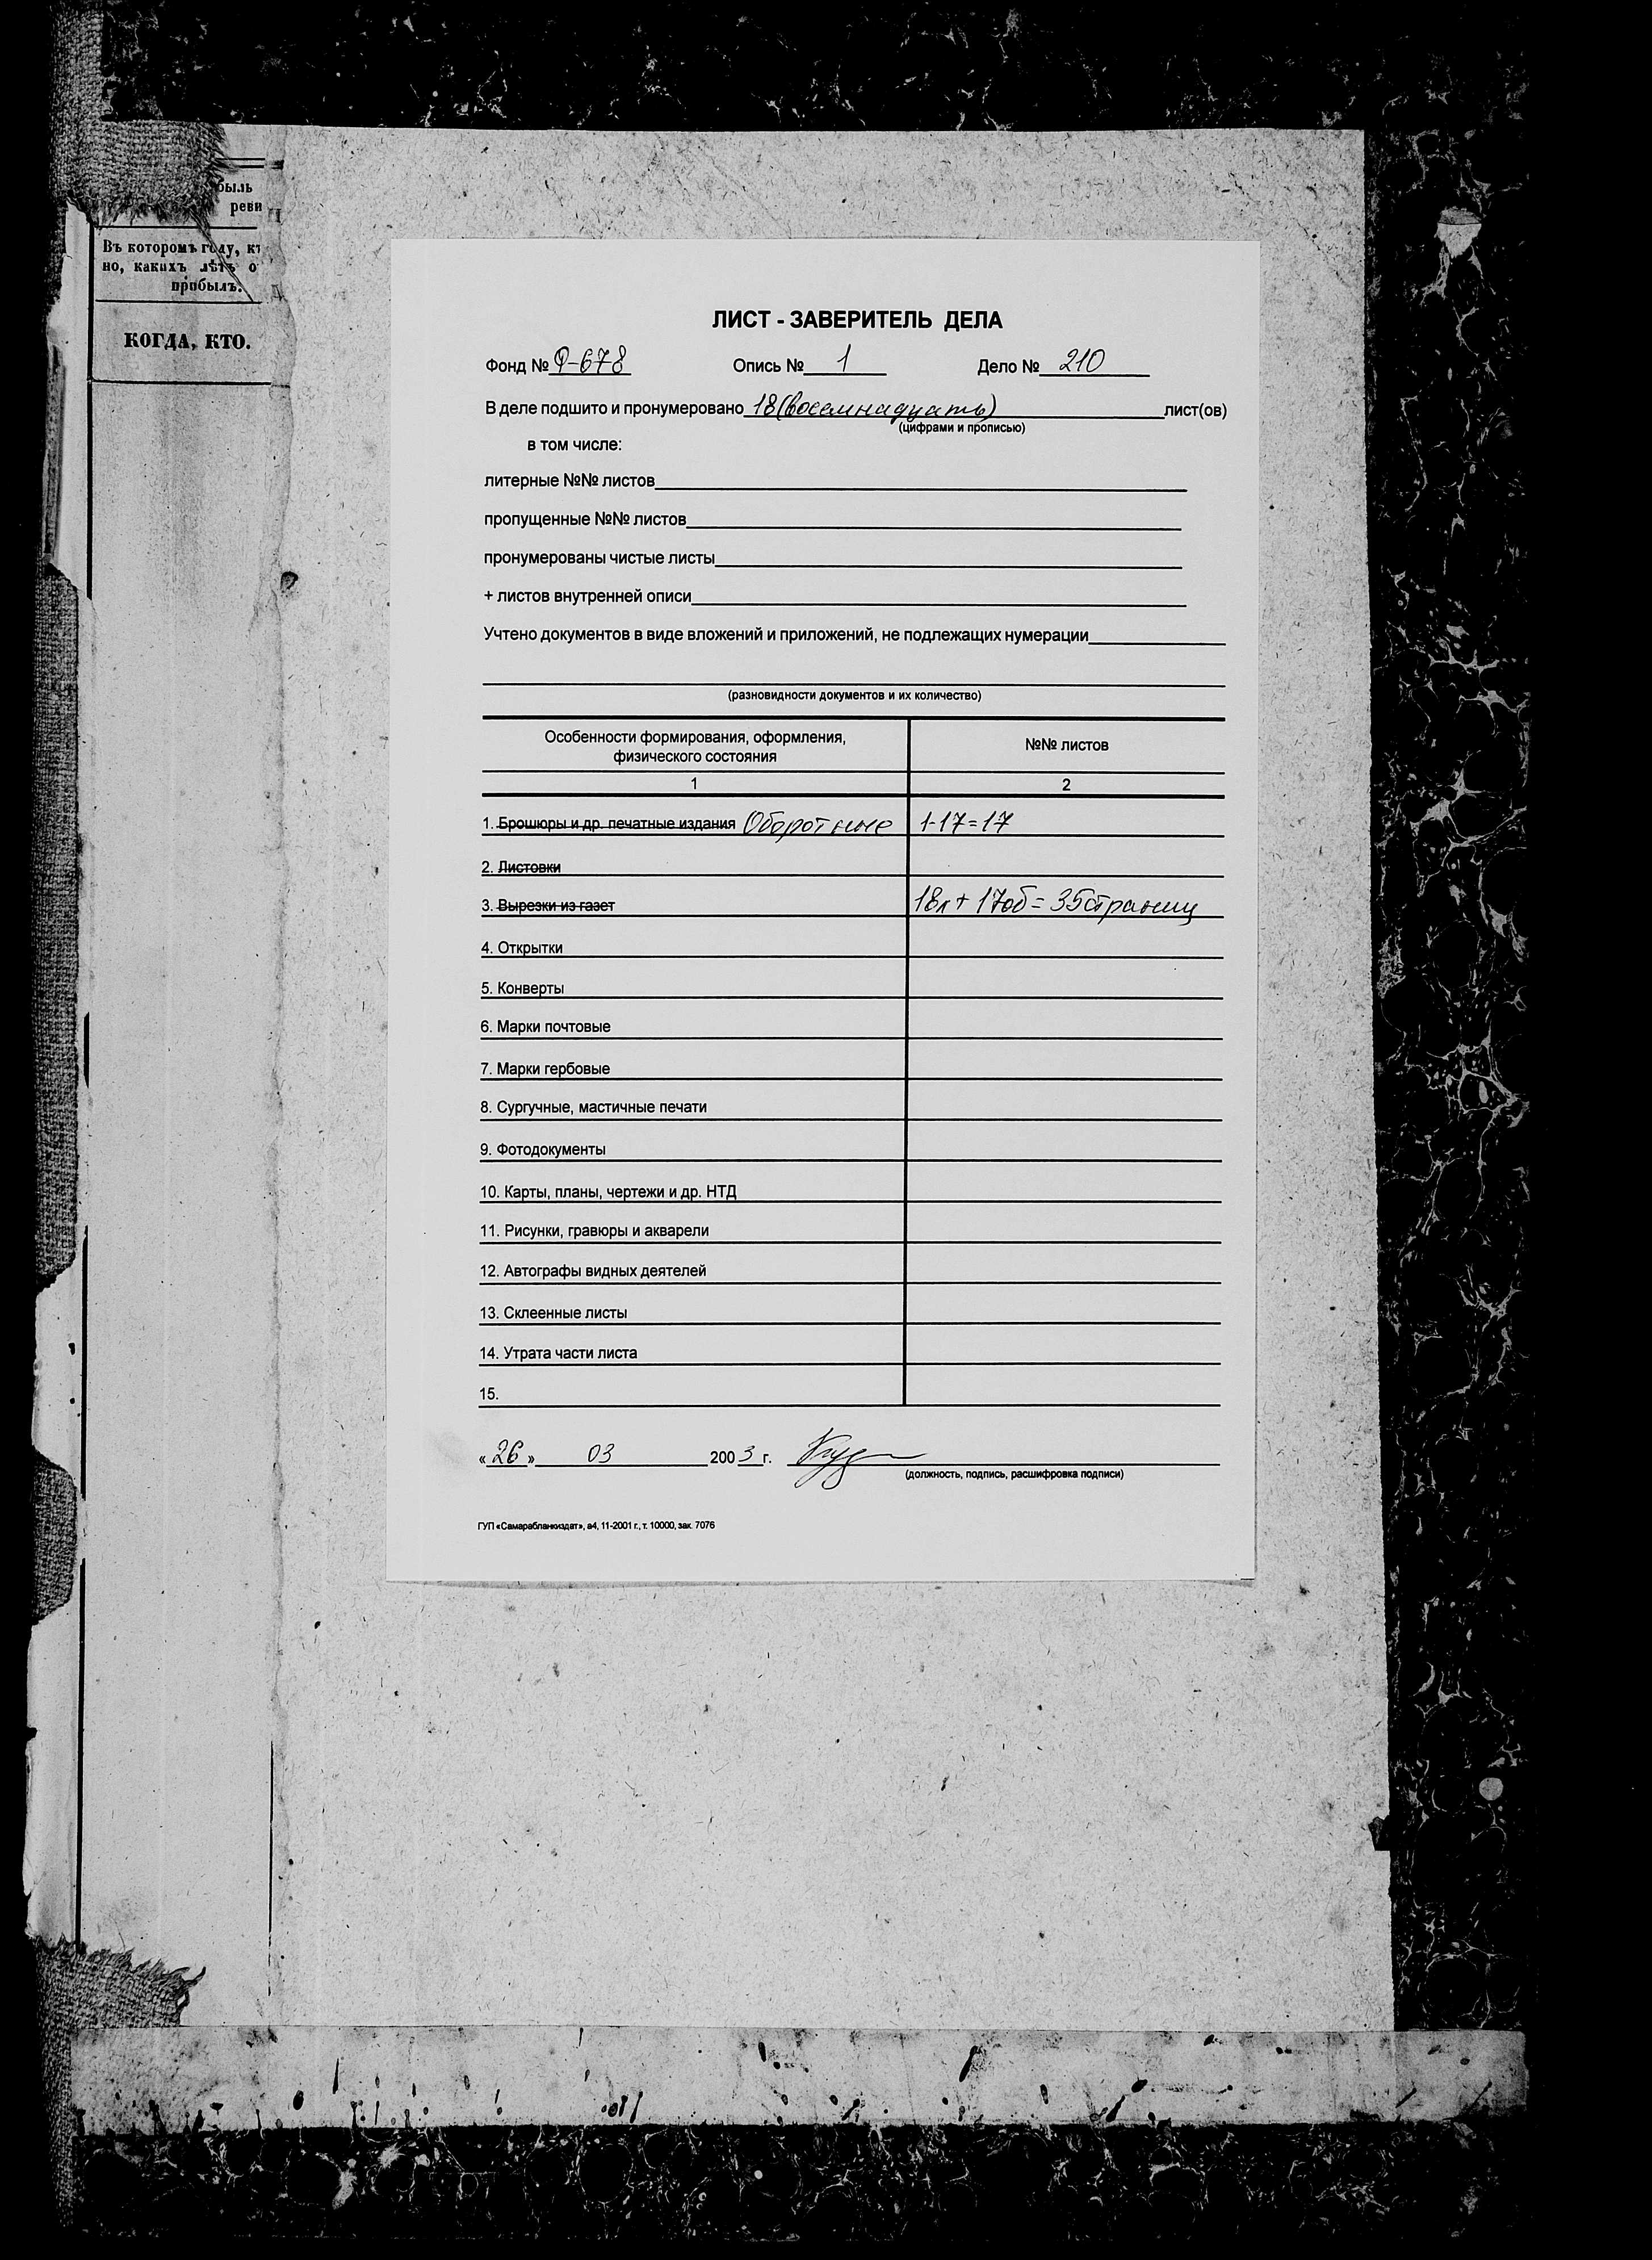 быль
реви
Въ которомъ году, кт
но, какихъ лѣтъ о
прибылъ.
КОГДА, КТО.
ЛИСТ - ЗАВЕРИТЕЛЬ ДЕЛА
Фонд № Ф-678 Опись № 1 Дело № 210
В деле подшито и пронумеровано 18 (восемнадцать) лист(ов)
(цифрами и прописью)
в том числе:
литерные №№ листов
пропущенные №№ листов
пронумерованы чистые листы
+ листов внутренней описи
Учтено документов в виде вложений и приложений, не подлежащих нумерации
(разновидности документов и их количество)
Особенности формирования, оформления, физического состояния №№ листов
1 2
1. Брошюры и др. печатные издания Оборотные 1-17=17
2. Листовки
3. Вырезки из газет 18л + 17об = 35 страниц
4. Открытки
5. Конверты
6. Марки почтовые
7. Марки гербовые
8. Сургучные, мастичные печати
9. Фотодокументы
10. Карты, планы, чертежи и др. НТД
11. Рисунки, гравюры и акварели
12. Автографы видных деятелей
13. Склеенные листы
14. Утрата части листа
15.
«26» 03 2003 г.
(должность, подпись, расшифровка подписи)
ГУП «Самарабланкиздат», а4, 11-2001 г., т. 10000, зак. 7076